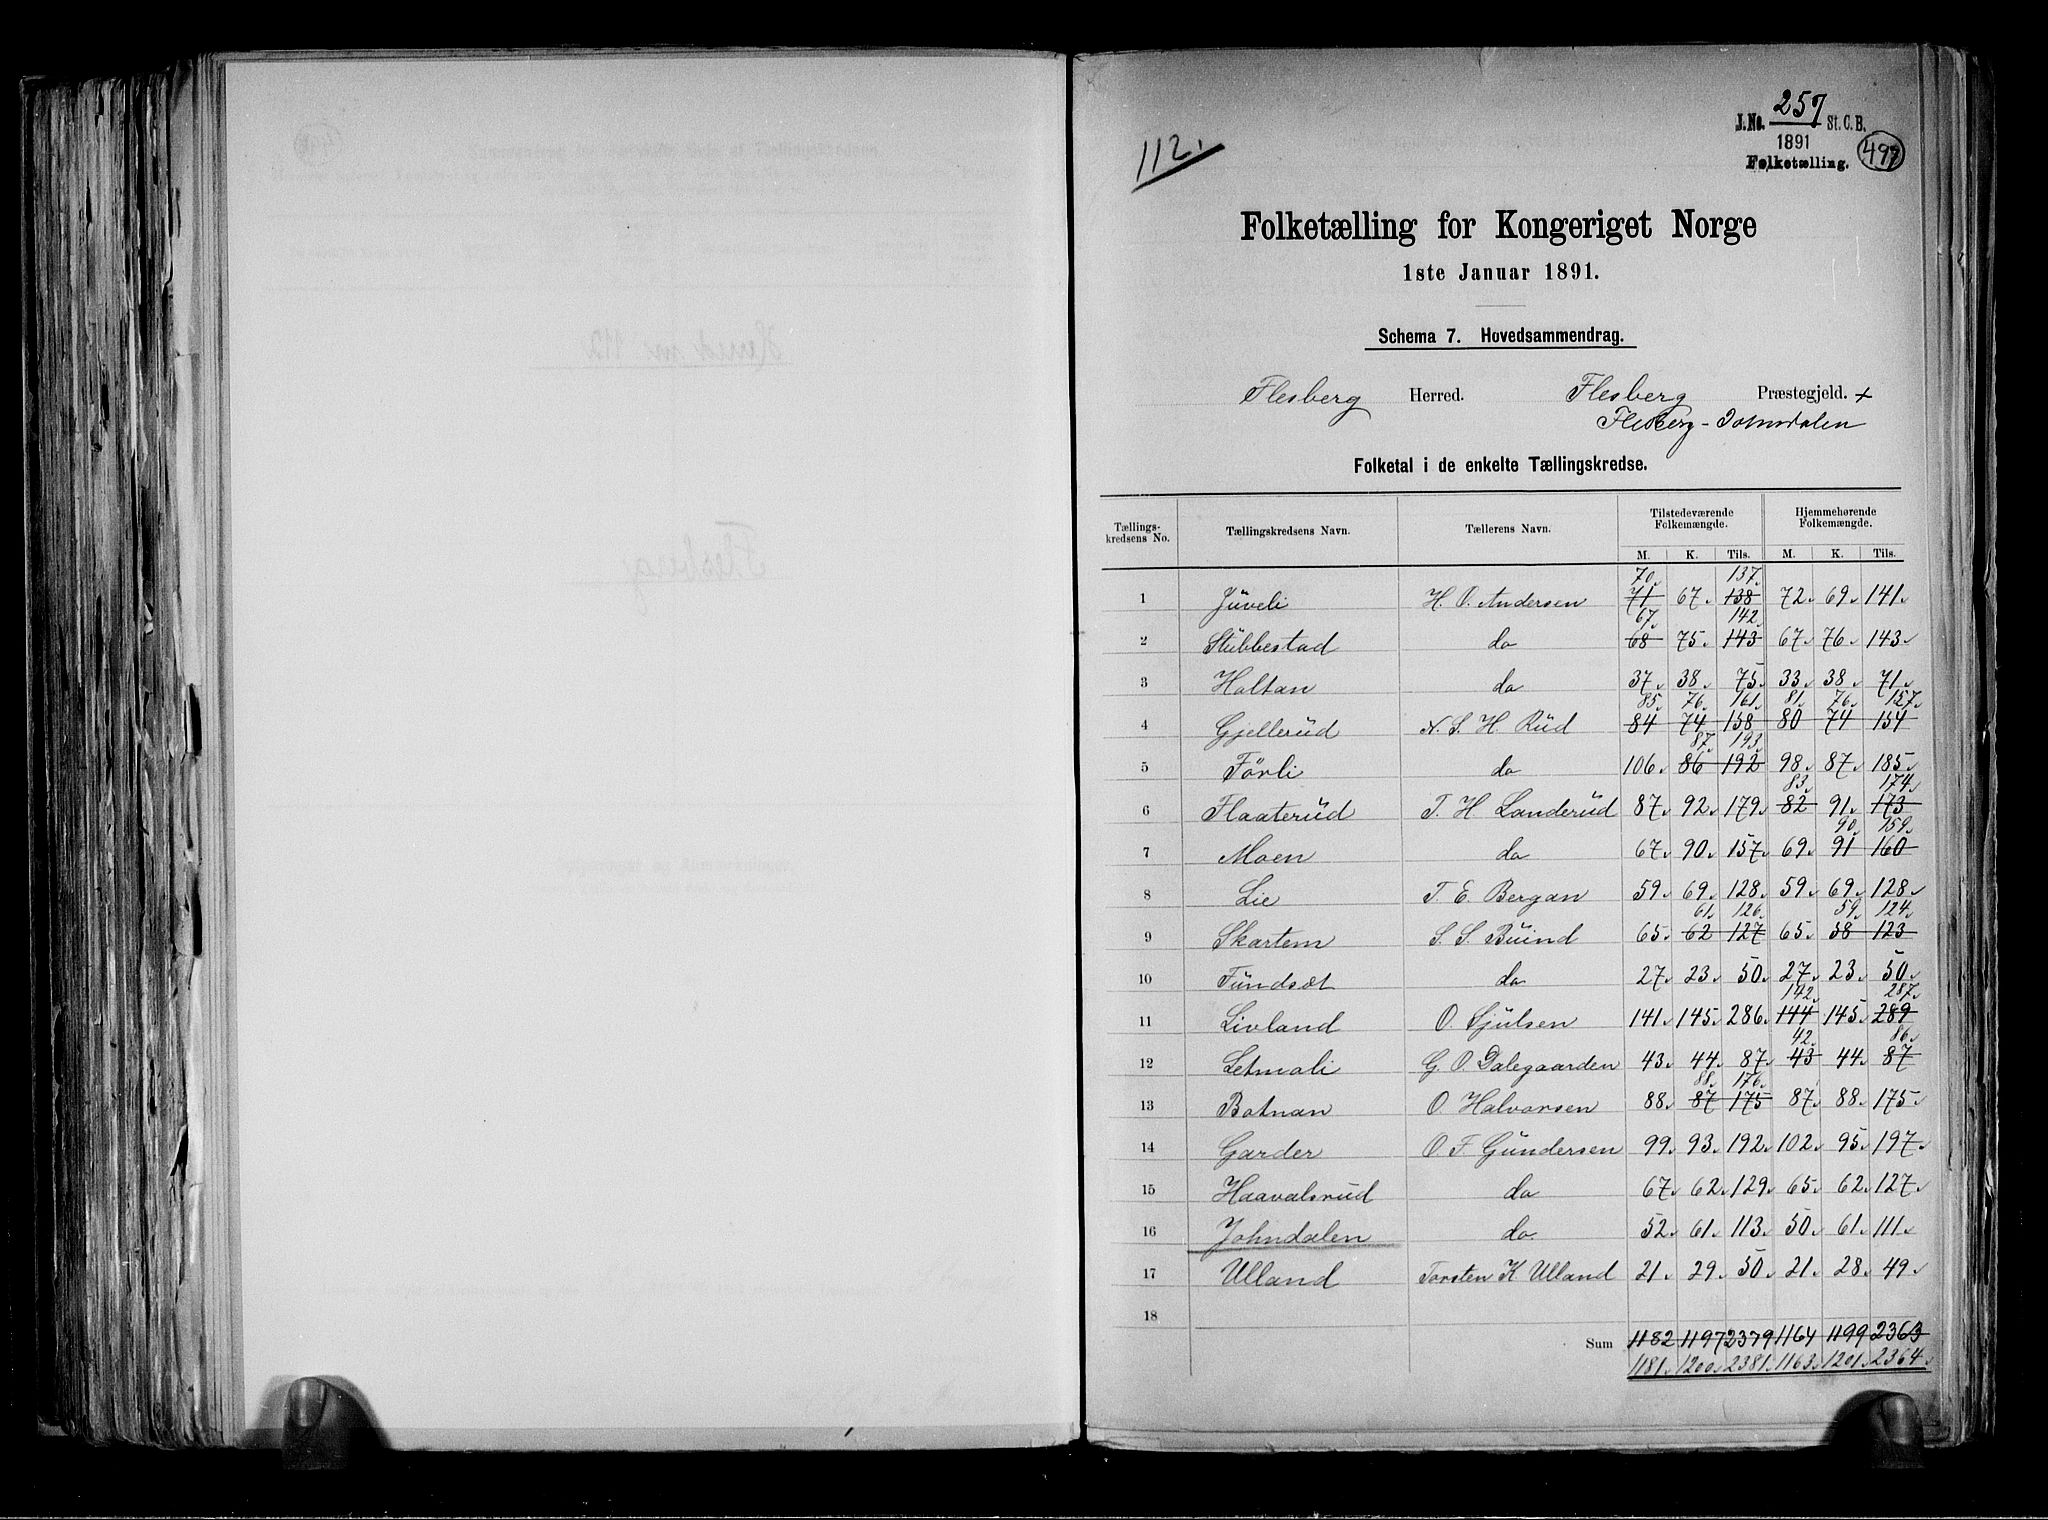 112.
J. No. 257 St. C. B.
1891
Folketælling.
499
Folketælling for Kongeriget Norge
1ste Januar 1891.
Schema 7. Hovedsammendrag.
Flesberg Herred. Flesberg Præstegjeld. +
Flesberg - Johnsdalen
Folketal i de enkelte Tællingskredse.
Tællings-kredsens No. Tællingskredsens Navn. Tællerens Navn. Tilstedeværende Folkemængde. Hjemmehørende Folkemængde.
M. K. Tils. M. K. Tils.
70. 137.
1 Juveli H. O. Andersen 71 67. 138 72. 69. 141.
67. 142.
2 Stubbestad do 68 75. 143 67. 76. 143.
3 Holtan do 37. 38. 75. 33. 38. 71.
85. 76. 161. 81. 76. 157.
4 Gjellerud N. S. H. Rud 84 74 158 80 74 154
87. 193.
5 Førli do 106. 86 192 98. 87. 185.
83. 174.
6 Flaaterud T. H. Landerud 87. 92. 179. 82 91. 173
90. 159.
7 Moen do 67. 90. 157. 69. 91 160
8 Lie T. E. Bergan 59. 69. 128. 59. 69. 128.
61. 126. 59. 124.
9 Skartem S. S. Buind 65. 62 127 65. 58 123
10 Fundsæt do 27. 23. 50. 27. 23. 50.
142. 287.
11 Livland O. Sjulsen 141. 145. 286. 144 145. 289
42. 86.
12 Letmoli G. O. Dalegaarden 43. 44. 87. 43 44. 87
88. 176.
13 Botnan O. Halvorsen 88. 87 175 87. 88. 175.
14 Garder O F Gundersen 99. 93. 192. 102. 95. 197.
15 Haavalsrud do 67. 62. 129. 65. 62. 127.
16 Johndalen do 52. 61. 113. 50. 61. 111.
17 Ulland Torsten K Ulland 21. 29. 50. 21. 28. 49.
18
Sum 1182 1197 2379 1164 1199 2363
1181. 1200. 2381. 1163. 1201. 2364.